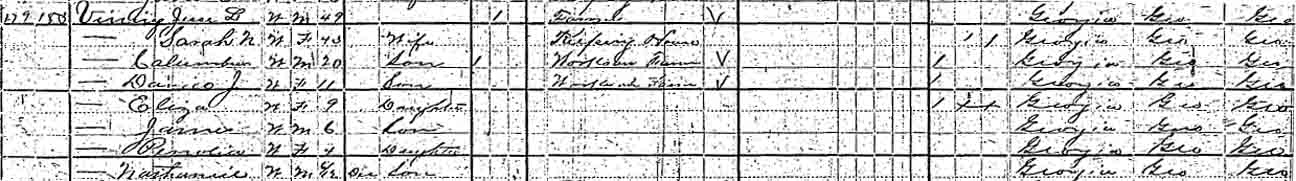 179 180 Vining Jesse L W M 49 1 Farmer Georgia Geo Geo
— Sarah N W F 43 Wife Keeping House 1 1 Georgia Geo Geo
— Columbus W M 20 Son 1 Works on Farm 1 Georgia Geo Geo
— J W F 11 Son Works on Farm 1 Georgia Geo Geo
— Eliza W F 9 Daughter 1 Georgia Geo Geo
— James W M 6 Son Georgia Geo Geo
— W F 4 Daughter Georgia Geo Geo
— W M Dec Son Georgia Geo Geo